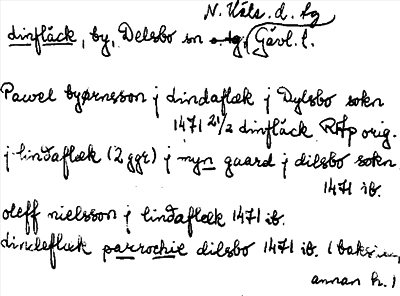 N. Häls. d. tg
dinfläck, by, Delsbo sn Gävl. l.
Pawel byørnsson j dindaflæk j Dylsbo sokn
1471 21/2 dinfläck RAp orig.
j lindaflæk (2 ggr) j myn gaard j dilsbo sokn
1471 ib.
oleff nielsson j lindaflæk 1471 ib.
dindeflæk parrochie dilsbo 1471 ib. (baksidan,
annan h.)